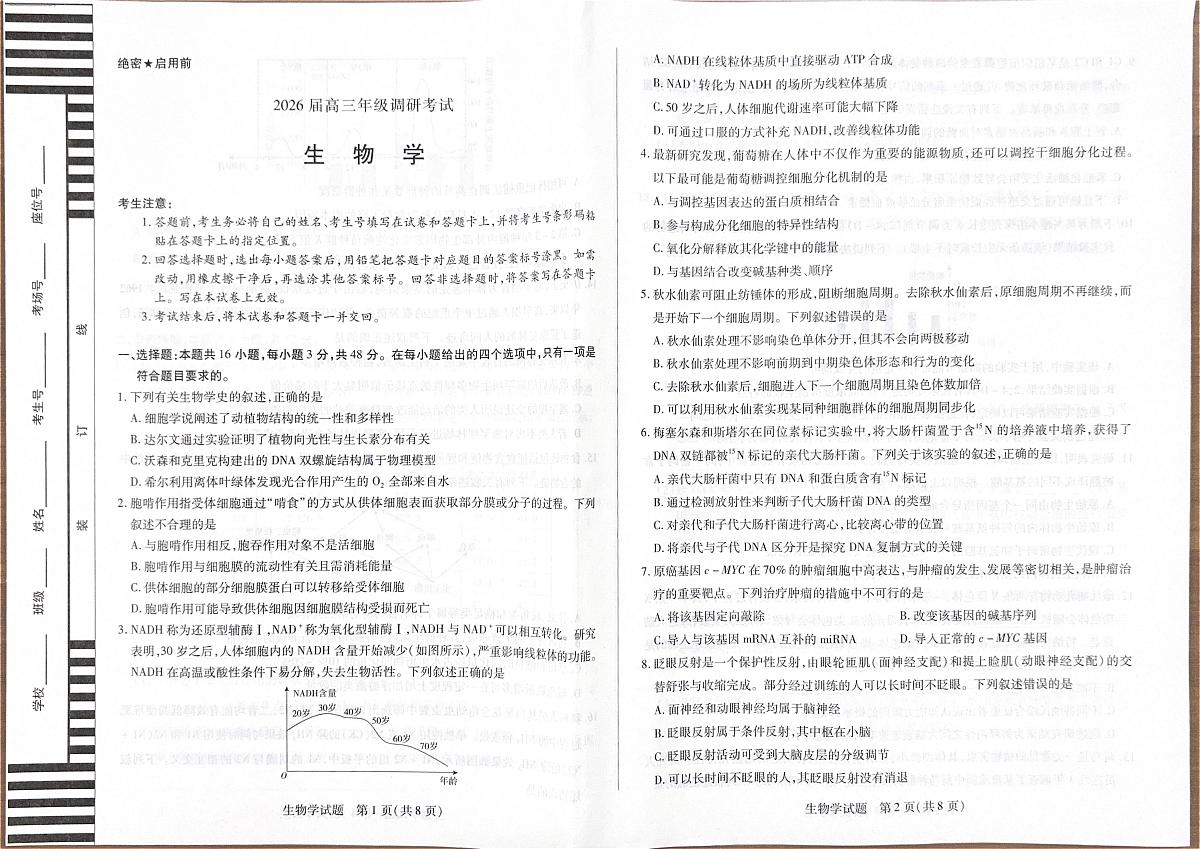 绝密★启用前
2026届高三年级调研考试
生 物 学
考生注意:
1.答题前,考生务必将自己的姓名、考生号填写在试卷和答题卡上,并将考生号条形码粘
贴在答题卡上的指定位置。
2.回答选择题时,选出每小题答案后,用铅笔把答题卡对应题目的答案标号涂黑。如需
改动,用橡皮擦干净后,再选涂其他答案标号。回答非选择题时,将答案写在答题卡
上。写在本试卷上无效。
3.考试结束后,将本试卷和答题卡一并交回。
一、选择题:本题共16小题,每小题3分,共48分。在每小题给出的四个选项中,只有一项是
符合题目要求的。
1.下列有关生物学史的叙述,正确的是
A.细胞学说阐述了动植物结构的统一性和多样性
B.达尔文通过实验证明了植物向光性与生长素分布有关
C.沃森和克里克构建出的DNA双螺旋结构属于物理模型
D.希尔利用离体叶绿体发现光合作用产生的O₂全部来自水
2.胞啃作用指受体细胞通过“啃食”的方式从供体细胞表面获取部分膜或分子的过程。下列
叙述不合理的是
A.与胞啃作用相反,胞吞作用对象不是活细胞
B.胞啃作用与细胞膜的流动性有关且需消耗能量
C.供体细胞的部分细胞膜蛋白可以转移给受体细胞
D.胞啃作用可能导致供体细胞因细胞膜结构受损而死亡
3.NADH称为还原型辅酶Ⅰ,NAD⁺称为氧化型辅酶Ⅰ,NADH与NAD⁺可以相互转化。研究
表明,30岁之后,人体细胞内的NADH含量开始减少(如图所示),严重影响线粒体的功能。
NADH在高温或酸性条件下易分解,失去生物活性。下列叙述正确的是
NADH含量
20岁 30岁 40岁
50岁
60岁
70岁
0
年龄
生物学试题 第1页(共8页)
A.NADH在线粒体基质中直接驱动ATP合成
B.NAD⁺转化为NADH的场所为线粒体基质
C.50岁之后,人体细胞代谢速率可能大幅下降
D.可通过口服的方式补充NADH,改善线粒体功能
4.最新研究发现,葡萄糖在人体中不仅作为重要的能源物质,还可以调控干细胞分化过程。
以下最可能是葡萄糖调控细胞分化机制的是
A.与调控基因表达的蛋白质相结合
B.参与构成分化细胞的特异性结构
C.氧化分解释放其化学键中的能量
D.与基因结合改变碱基种类、顺序
5.秋水仙素可阻止纺锤体的形成,阻断细胞周期。去除秋水仙素后,原细胞周期不再继续,而
是开始下一个细胞周期。下列叙述错误的是
A.秋水仙素处理不影响染色单体分开,但其不会向两极移动
B.秋水仙素处理不影响前期到中期染色体形态和行为的变化
C.去除秋水仙素后,细胞进入下一个细胞周期且染色体数加倍
D.可以利用秋水仙素实现某同种细胞群体的细胞周期同步化
6.梅塞尔森和斯塔尔在同位素标记实验中,将大肠杆菌置于含¹⁵N的培养液中培养,获得了
DNA双链都被¹⁵N标记的亲代大肠杆菌。下列关于该实验的叙述,正确的是
A.亲代大肠杆菌中只有DNA和蛋白质含有¹⁵N标记
B.通过检测放射性来判断子代大肠杆菌DNA的类型
C.对亲代和子代大肠杆菌进行离心,比较离心带的位置
D.将亲代与子代DNA区分开是探究DNA复制方式的关键
7.原癌基因c-MYC在70%的肿瘤细胞中高表达,与肿瘤的发生、发展等密切相关,是肿瘤治
疗的重要靶点。下列治疗肿瘤的措施中不可行的是
A.将该基因定向敲除 B.改变该基因的碱基序列
C.导入与该基因mRNA互补的miRNA D.导入正常的c-MYC基因
8.眨眼反射是一个保护性反射,由眼轮匝肌(面神经支配)和提上睑肌(动眼神经支配)的交
替舒张与收缩完成。部分经过训练的人可以长时间不眨眼。下列叙述错误的是
A.面神经和动眼神经均属于脑神经
B.眨眼反射属于条件反射,其中枢在小脑
C.眨眼反射活动可受到大脑皮层的分级调节
D.可以长时间不眨眼的人,其眨眼反射没有消退
生物学试题 第2页(共8页)
学校
班级
姓名
考生号
考场号
座位号
装
订
线